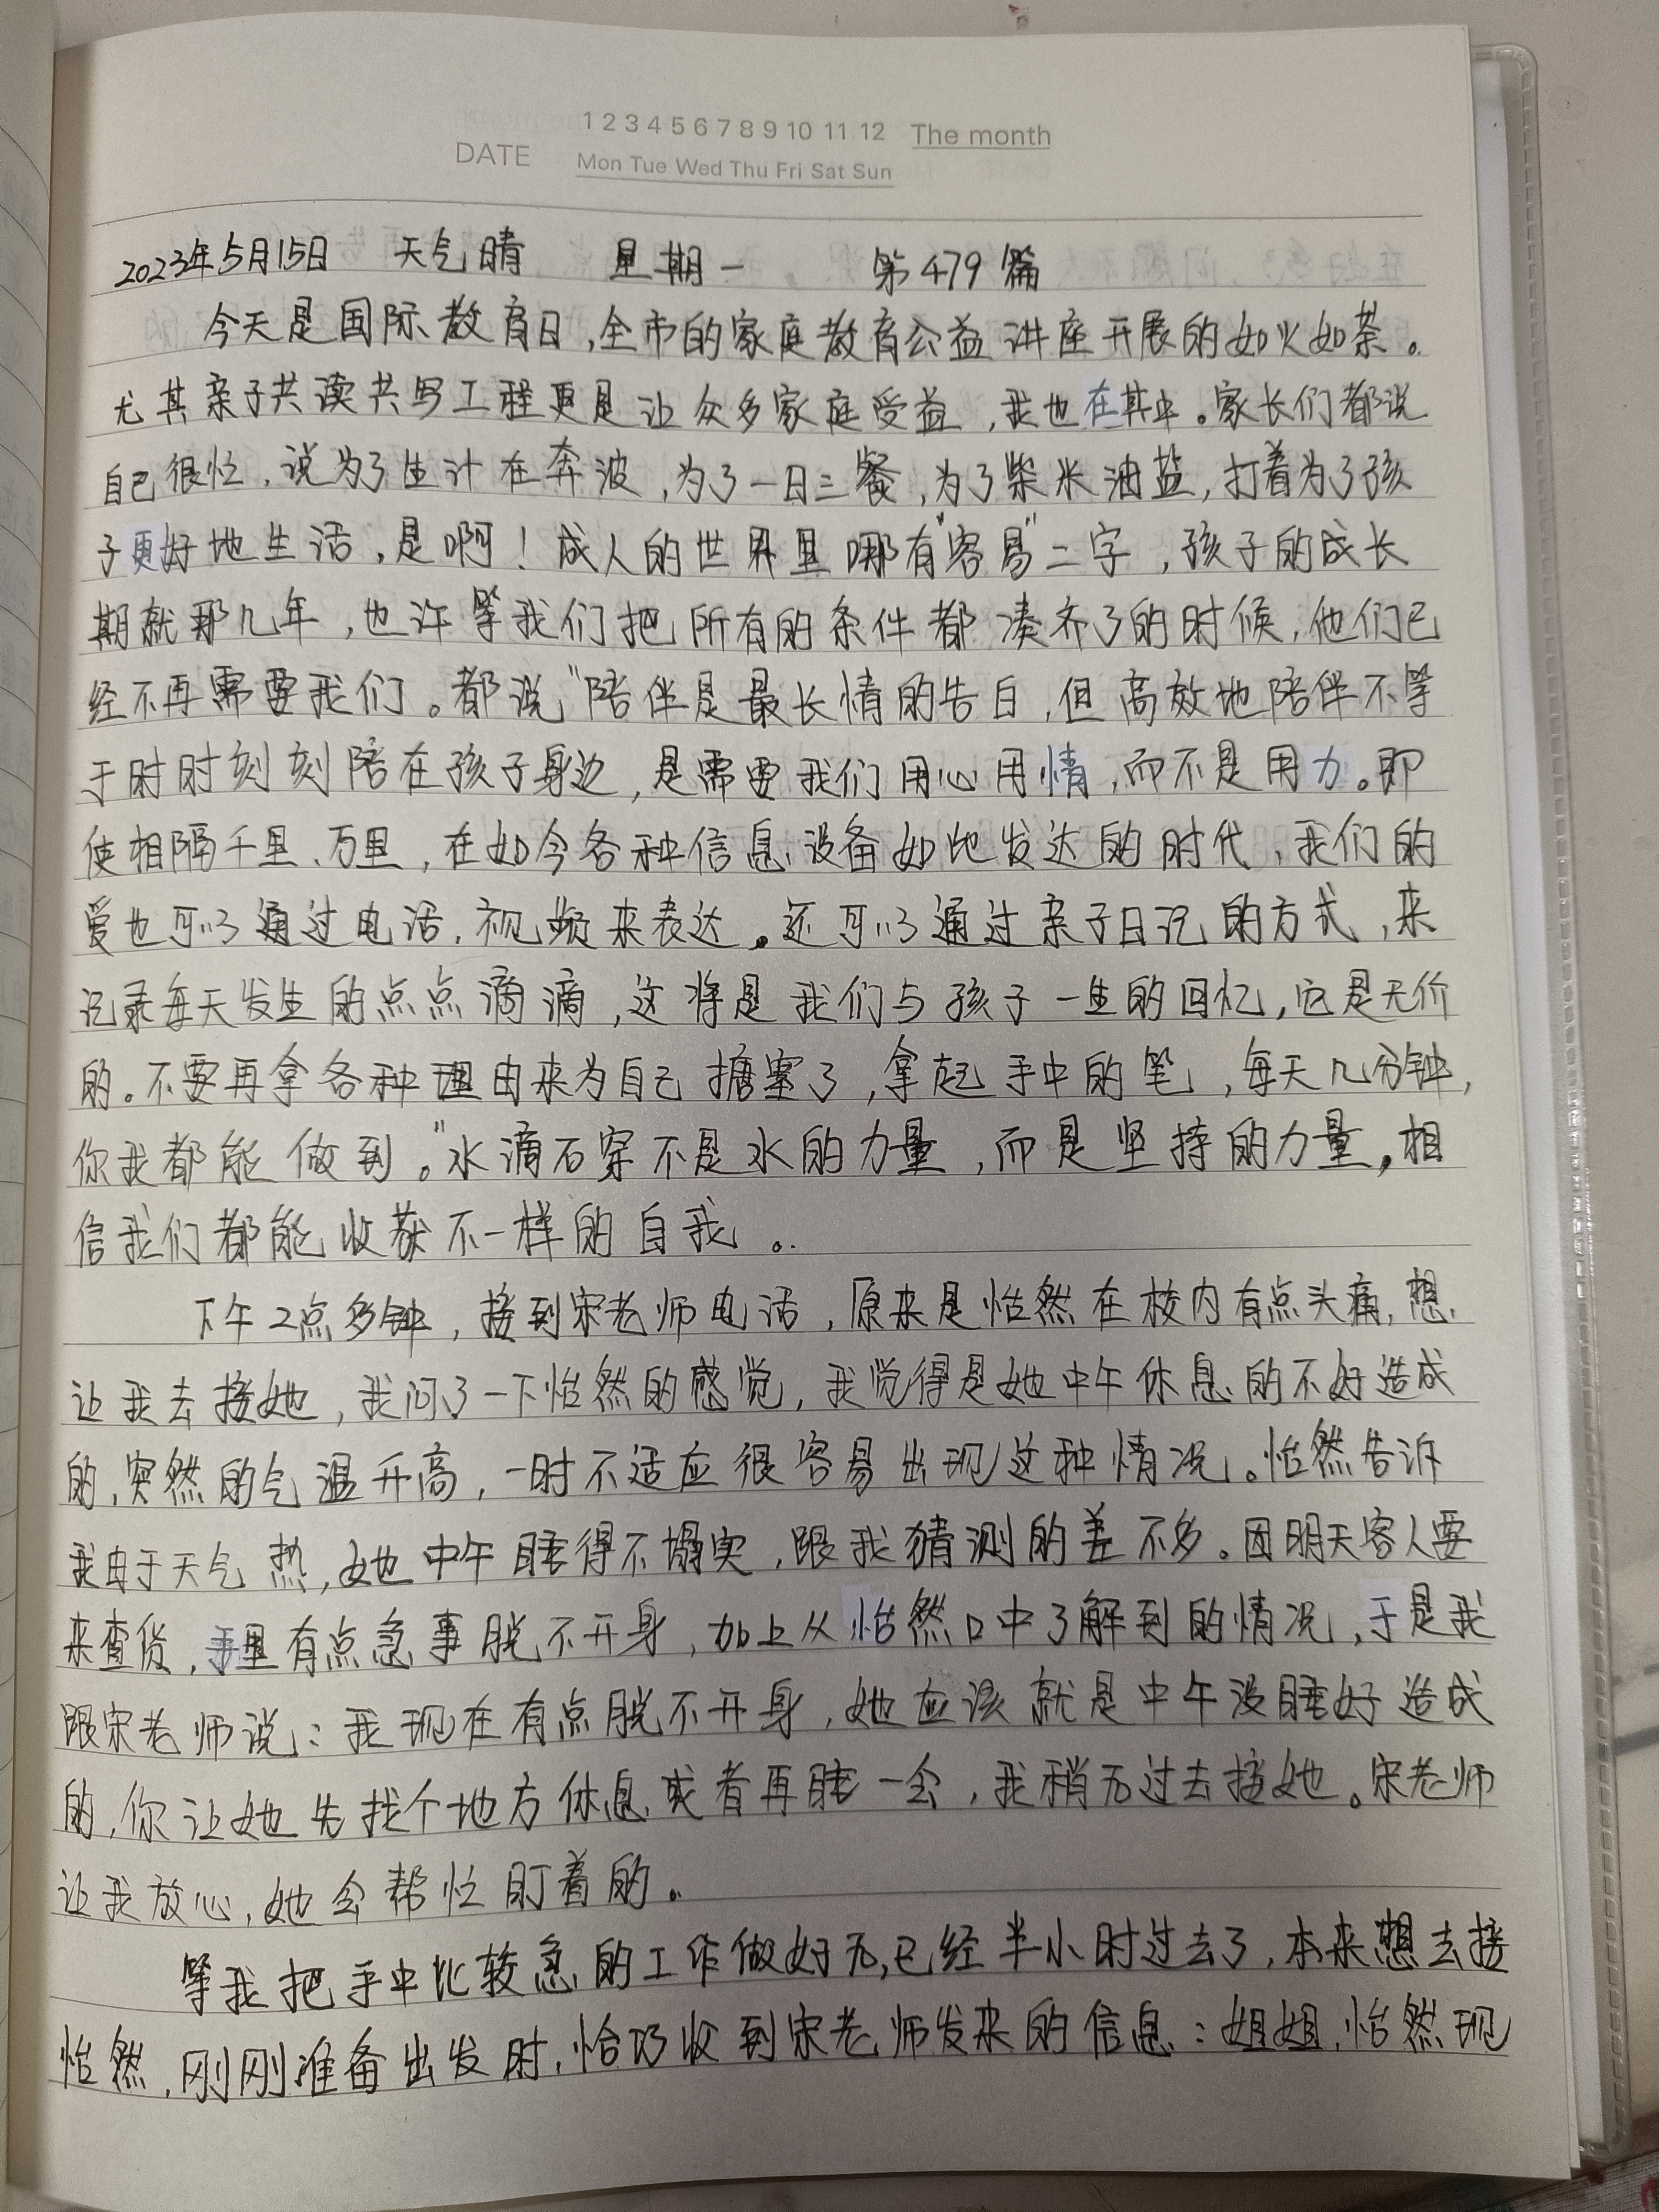 1 2 3 4 5 6 7 8 9 10 11 12 The month
DATE Mon Tue Wed Thu Fri Sat Sun
2023年5月15日 天气晴 星期一 第479篇
今天是国际教育日,全市的家庭教育公益讲座开展的如火如荼。
尤其亲子共读共写工程更是让众多家庭受益,我也在其中。家长们都说
自己很忙,说为了生计在奔波,为了一日三餐,为了柴米油盐,打着为了孩
子更好地生活,是啊!成人的世界里哪有"容易"二字,孩子的成长
期就那几年,也许等我们把所有的条件都凑齐了的时候,他们已
经不再需要我们。都说"陪伴是最长情的告白,但高效地陪伴不等
于时时刻刻陪在孩子身边,是需要我们用心用情,而不是用力。即
使相隔千里、万里,在如今各种信息设备如此发达的时代,我们的
爱也可以通过电话,视频来表达。还可以通过亲子日记的方式,来
记录每天发生的点点滴滴,这将是我们与孩子一生的回忆,它是无价
的。不要再拿各种理由来为自己搪塞了,拿起手中的笔,每天几分钟,
你我都能做到。"水滴石穿不是水的力量,而是坚持的力量,相
信我们都能收获不一样的自我。
下午2点多钟,接到宋老师电话,原来是怡然在校内有点头痛,想
让我去接她,我问了一下怡然的感觉,我觉得是她中午休息的不好造成
的,突然的气温升高,一时不适应很容易出现这种情况。怡然告诉
我由于天气热,她中午睡得不塌实,跟我猜测的差不多。因明天客人要
来查货,手里有点急事脱不开身,加上从怡然口中了解到的情况,于是我
跟宋老师说:我现在有点脱不开身,她应该就是中午没睡好造成
的,你让她先找个地方休息或者再睡一会,我稍后过去接她。宋老师
让我放心,她会帮忙盯着的。
等我把手中比较急的工作做好后,已经半小时过去了,本来想去接
怡然,刚刚准备出发时,恰巧收到宋老师发来的信息:姐姐,怡然现